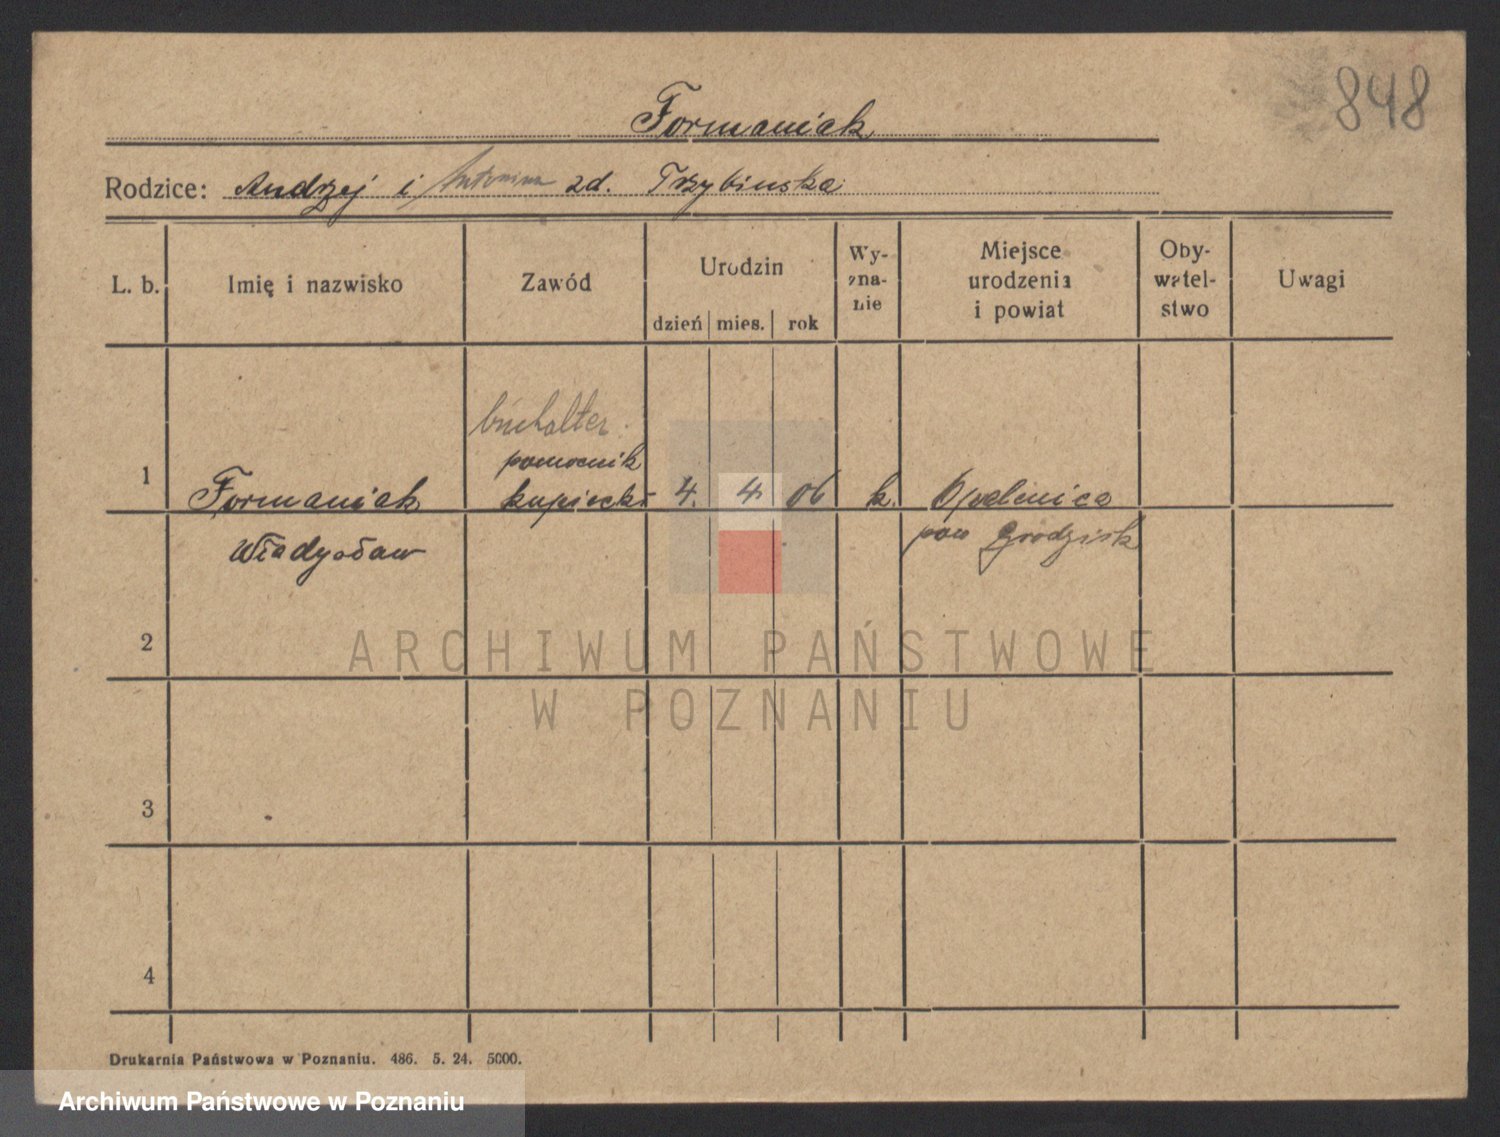 848
Formaniak
Rodzice: Andrzej i Antonina zd. Trzybinska
L. b. Imię i nazwisko Zawód Urodzin dzień mies. rok Wy-zna-nie Miejsce urodzenia i powiat Oby-watel-stwo Uwagi
buchalter
pomocnik
1 Formaniak kupiecki 4. 4 06 k. Opalenica
Władysław pow Grodzisk
2
ARCHIWUM PAŃSTWOWE
W POZNANIU
3
4
Drukarnia Państwowa w Poznaniu. 486. 5. 24. 5000.
Archiwum Państwowe w Poznaniu